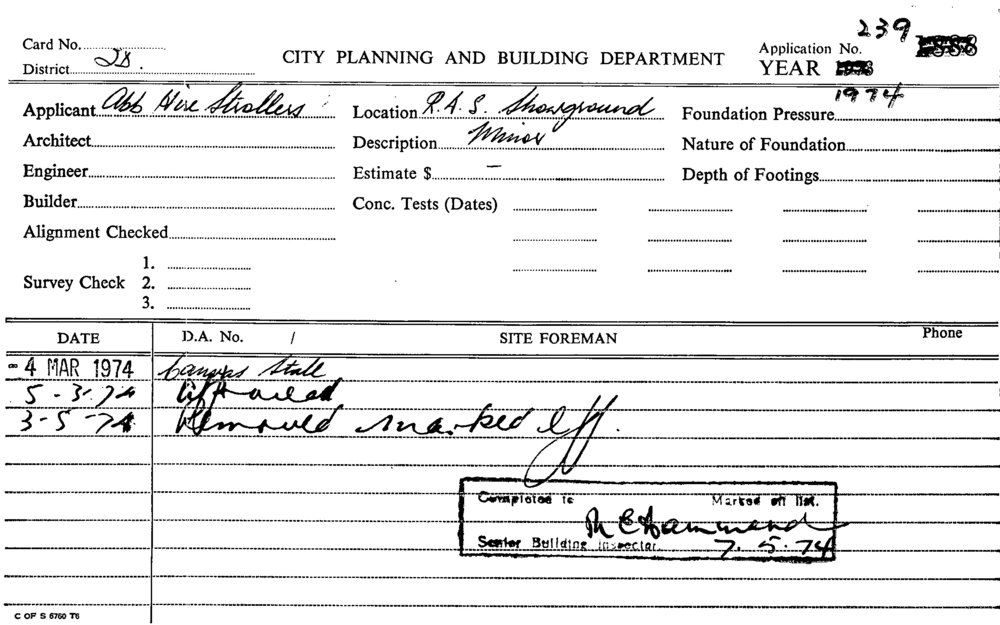 Card No. CITY PLANNING AND BUILDING DEPARTMENT Application No. 239
District YEAR 1974
Applicant Abb Hire Strollers Location R.A.S. Showground Foundation Pressure
Architect Description Minor Nature of Foundation
Engineer Estimate $ – Depth of Footings
Builder Conc. Tests (Dates)
Alignment Checked
1.
Survey Check 2.
3.
DATE D.A. No. / SITE FOREMAN Phone
- 4 MAR 1974 Canvas Stall
5-3-74 Approved
3-5-74 Removed marked off.
Completed is Marked off list.
Hammond
Senior Building Inspector. 7.5.74
C OF S 6760 T6